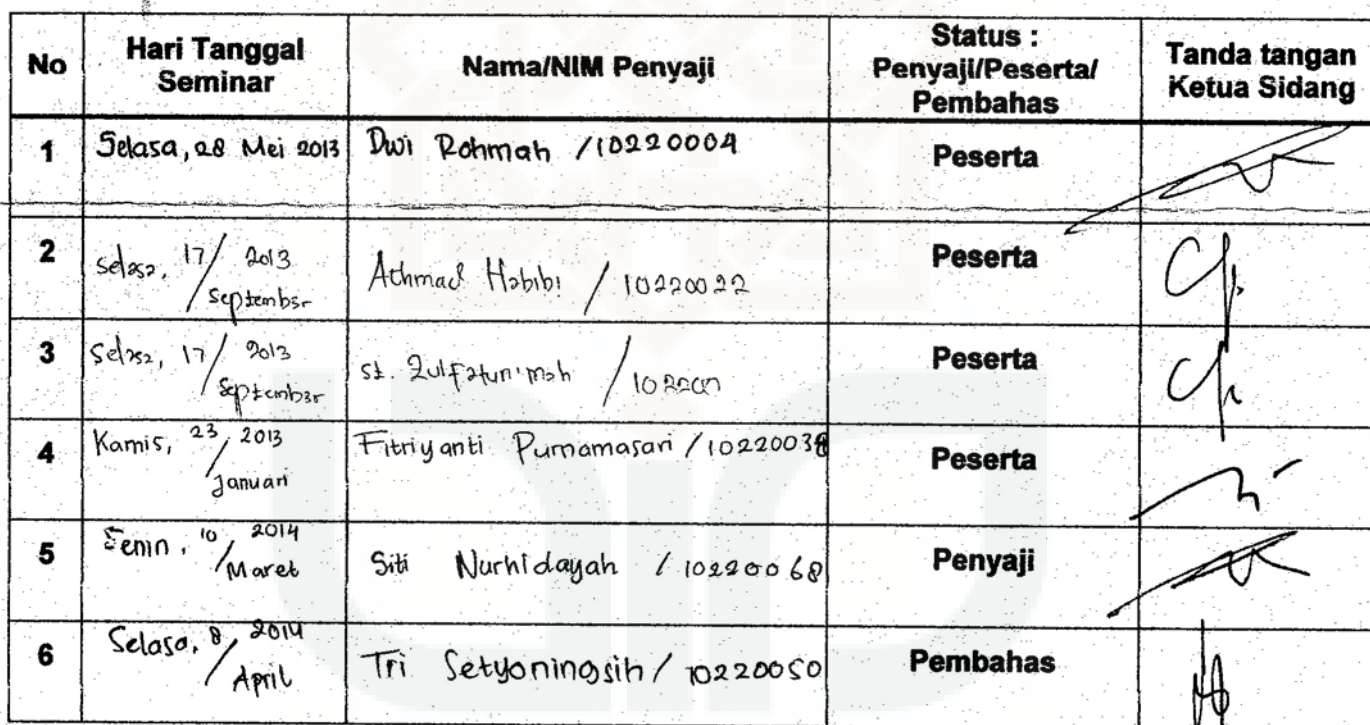 No Hari Tanggal Seminar Nama/NIM Penyaji Status : Penyaji/Peserta/ Pembahas Tanda tangan Ketua Sidang
1 Selasa, 28 Mei 2013 Dwi Rohmah /10220004 Peserta
2 Selasa, 17/ September 2013 Achmad Habibi / 10220022 Peserta
3 Selasa, 17/ September 2013 st. Zulfatun / Peserta
4 Kamis, 23/ Januari 2013 Fitriyanti Purnamasari /10220038 Peserta
5 Senin, 10/ Maret 2014 Siti Nurhidayah / 10220068 Penyaji
6 Selasa, 8/ April 2014 Tri Setyoningsih / 10220050 Pembahas